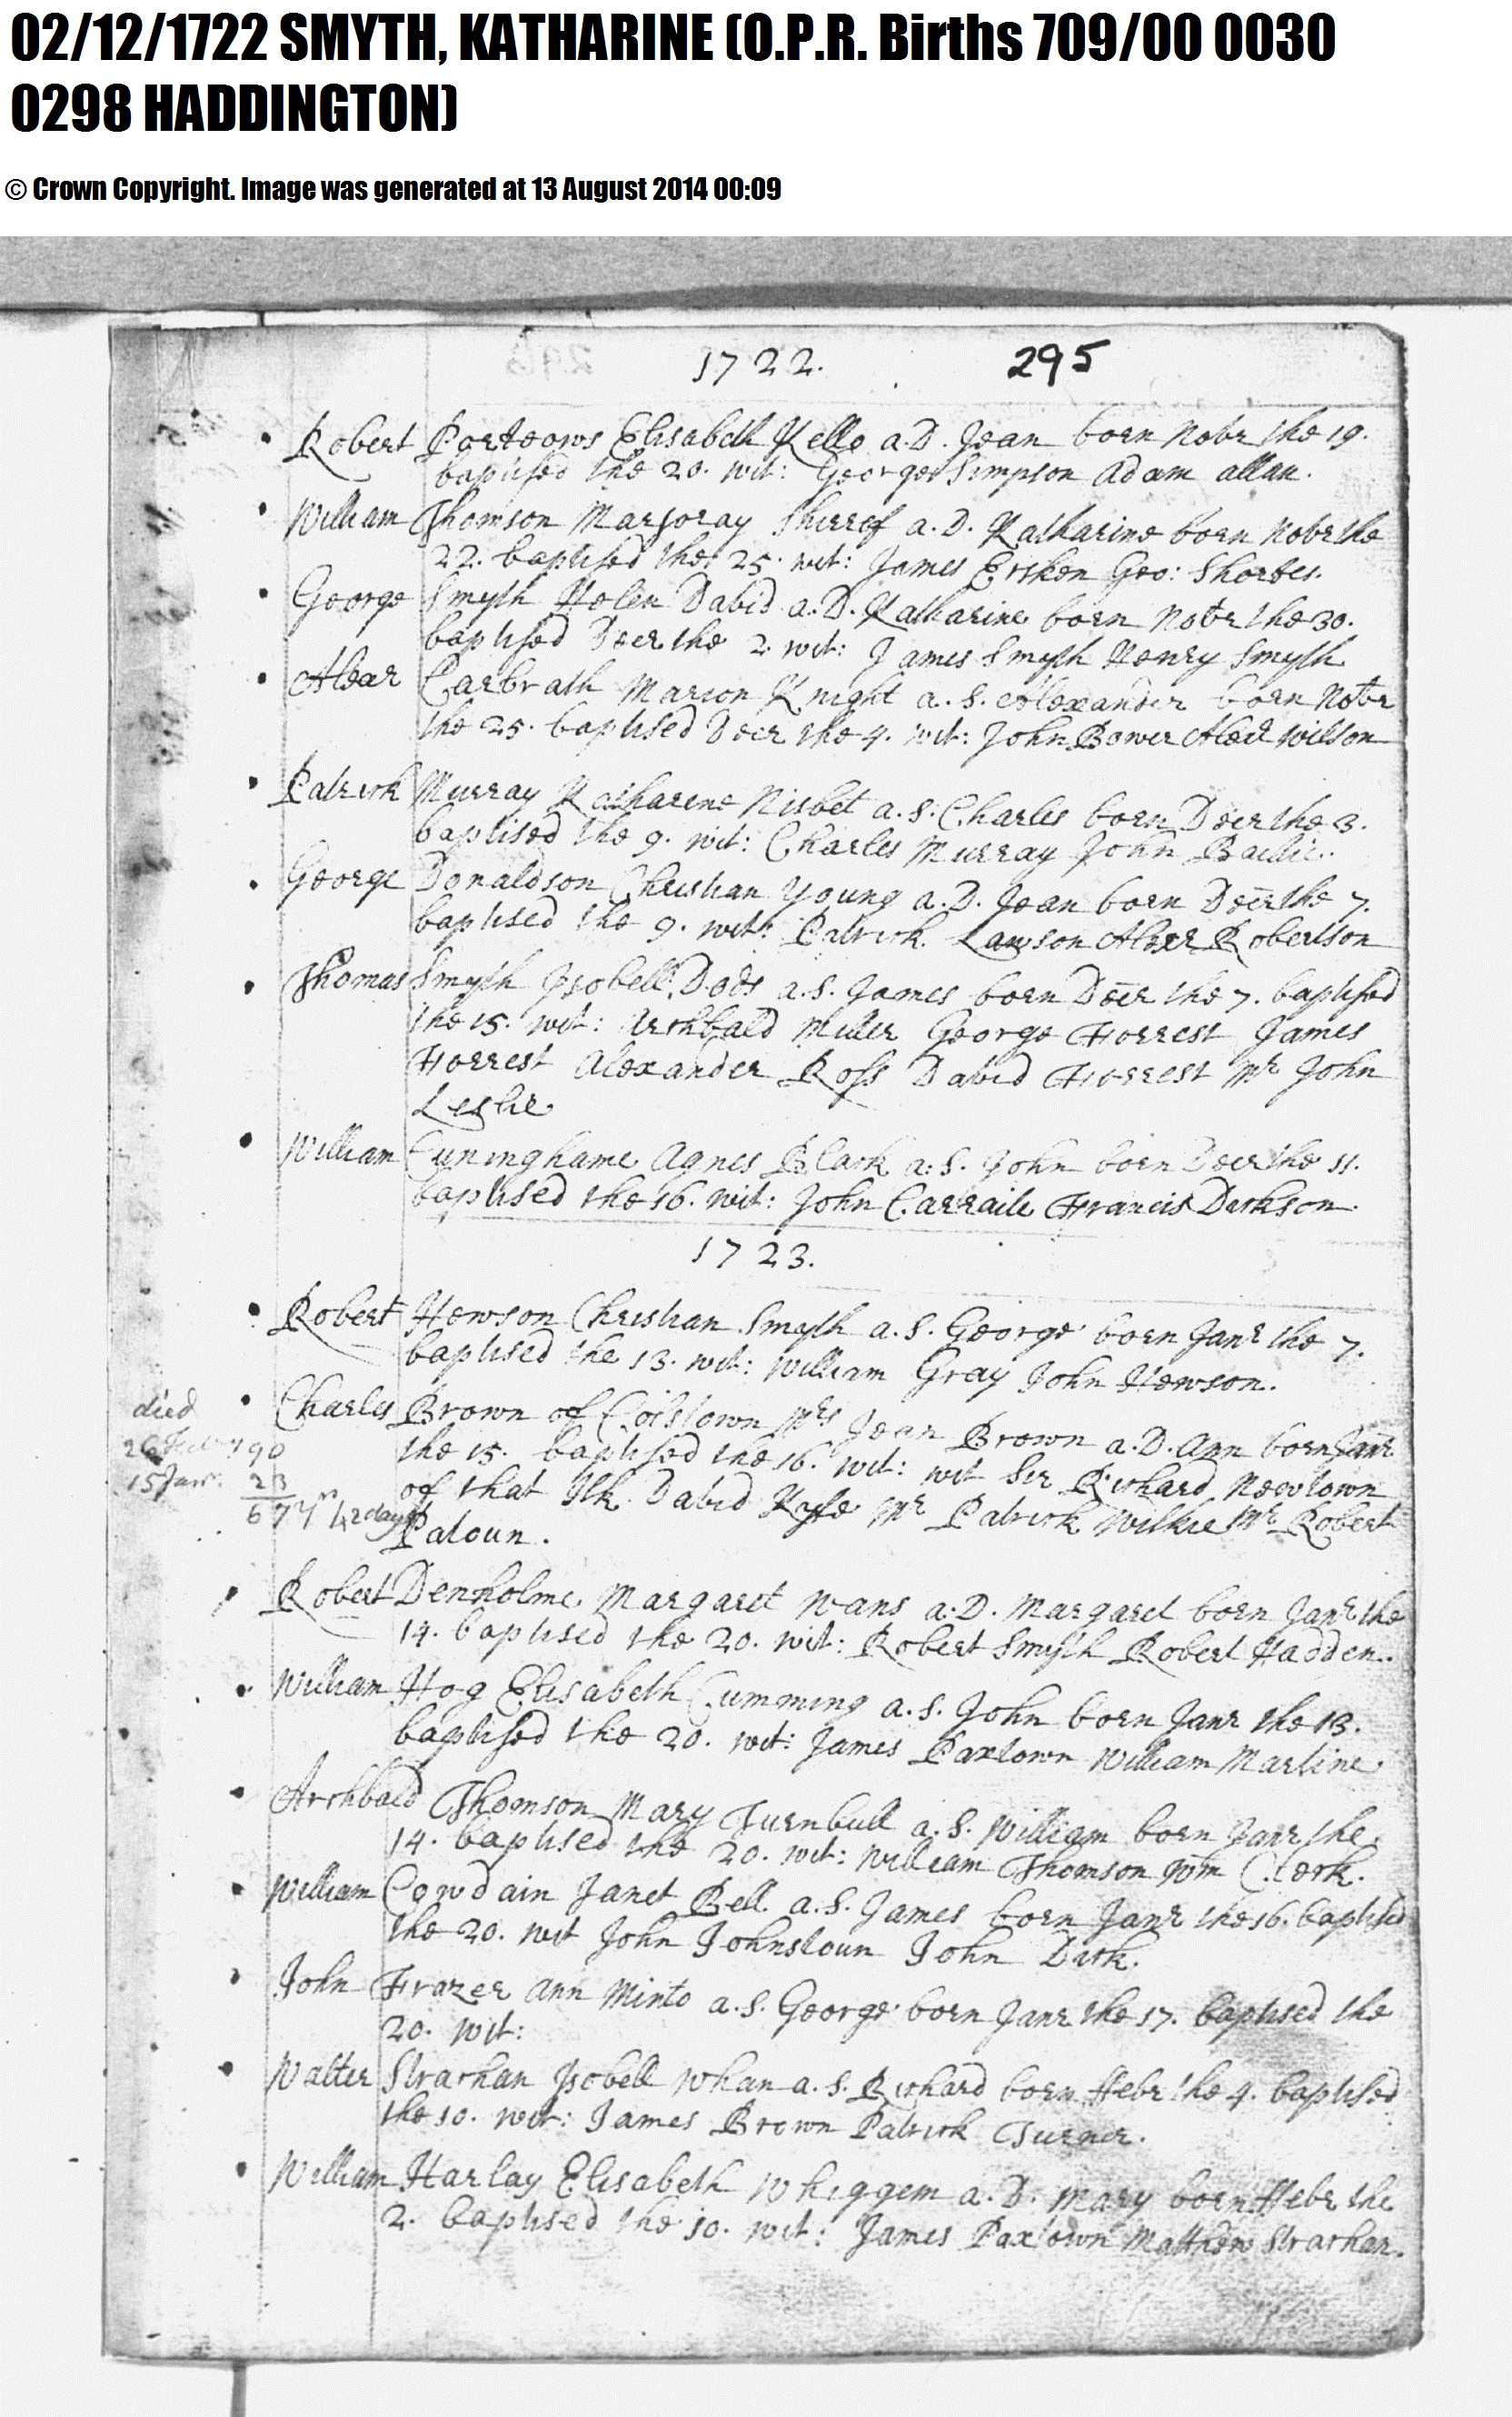 02/12/1722 SMYTH, KATHARINE (O.P.R. Births 709/00 0030
0298 HADDINGTON)
© Crown Copyright. Image was generated at 13 August 2014 00:09
1722. 295
Robert Porteows Elisabeth Kello a.D. Jean born Nobr the 19.
baptised the 20. wit: George Simpson Adam allan.
William Thomson Marjoray Shirref a.D. Katharine born Nobr the
22. baptised the 25. wit: James Ersken Geo: Shorbes.
George Smyth Helen David a.D. Katharine born Nobr the 30.
baptised Decr the 2. wit: James Smyth Henry Smyth
Alexr Carbrath Marion Knight a.S. Alexander born Nobr
the 25. baptised Decr the 4. wit: John Bower Alexr Wilson
Patrick Murray Katharine Nisbet a.S. Charles born Decr the 3.
baptised the 9. wit: Charles Murray John Bailie.
George Donaldson Christian Young a.D. Jean born Decr the 7.
baptised the 9. wit: Patrick Lawson Alexr Robertson
Thomas Smyth Isobell Dods a.S. James born Decr the 7. baptised
the 15. wit: Archbald Miller George Forrest James
Forrest Alexander Ross David Forrest Mr John
Leslie
William Cuninghame Agnes Black a.S. John born Decr the 11.
baptised the 16. wit: John Carraile Francis Dickson.
1723.
Robert Howson Christian Smyth a.S. George born Janr the 7.
baptised the 13. wit: William Gray John Howson.
Charles Brown of Coilstown Mrs Jean Brown a.D. Ann born Janr
the 15. baptised the 16. wit: wit Sir Richard Newtown
of that Ilk David Kyle Mr Patrick Wilkie Mr Robert
Patoun.
died
26 90
15 Janr. 23
67 yrs 42 days
Robert Denholme Margaret Wans a.D. Margaret born Janr the
14. baptised the 20. wit: Robert Smyth Robert Hadden.
William Hog Elisabeth Cumming a.S. John born Janr the 13.
baptised the 20. wit: James Paxtown William Martine
Archbald Thomson Mary Turnbull a.S. William born Janr the
14. baptised the 20. wit: William Thomson Wm Clerk.
William Cowdain Janet Bell a.S. James born Janr the 16. baptised
the 20. wit John Johnstoun John Dick.
John Frazer Ann Minto a.S. George born Janr the 17. baptised the
20. wit:
Walter Strachan Isobell Whan a.S. Richard born Febr the 4. baptised
the 10. wit: James Brown Patrick Turner.
William Harlay Elisabeth Whiggem a.D. Mary born Febr the
2. baptised the 10. wit: James Paxtown Matthew Strachan.